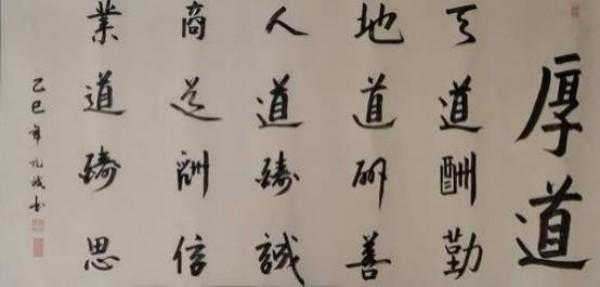 厚道
天道酬勤
地道酬善
人道醻誠
商道酬信
業道醻思
乙巳年